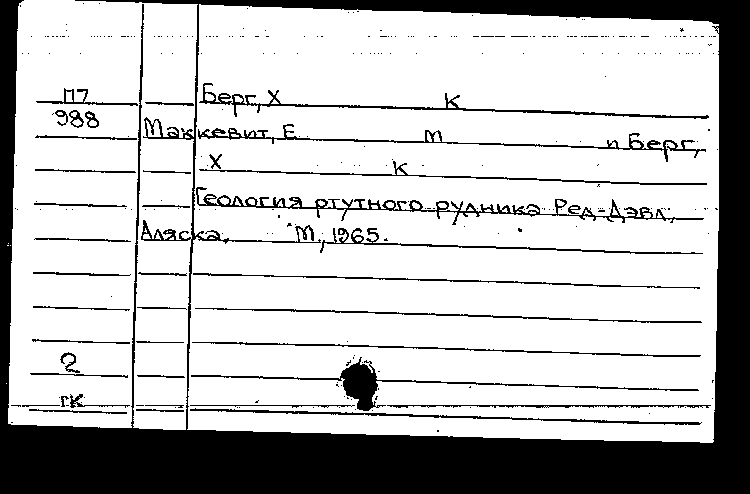 П7 Берг, Х К
988 Маккевит, Е М и Берг,
Х К
Геология ртутного рудника Ред-Дэвл,
Аляска. М, 1965.
2
ГК